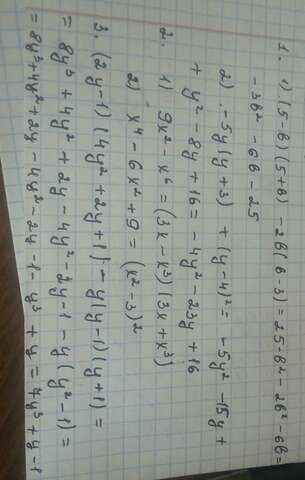 1. 1) (5-в)(5+в) -2в(в-3)=25-в²-2в²-6в=
-3в²-6в-25
2) -5y(y+3) + (y-4)²= -5y²-15y+
+ y²-8y+16= -4y²-23y+16
2. 1) 9x²-x⁶=(3x-x³)(3x+x³)
2) x⁴-6x²+9=(x²-3)²
3. (2y-1)(4y²+2y+1)-y(y-1)(y+1)=
= 8y³+4y²+2y-4y²-2y-1-y(y²-1)=
= 8y³+4y²+2y-4y²-2y-1-y³+y=7y³+y-1